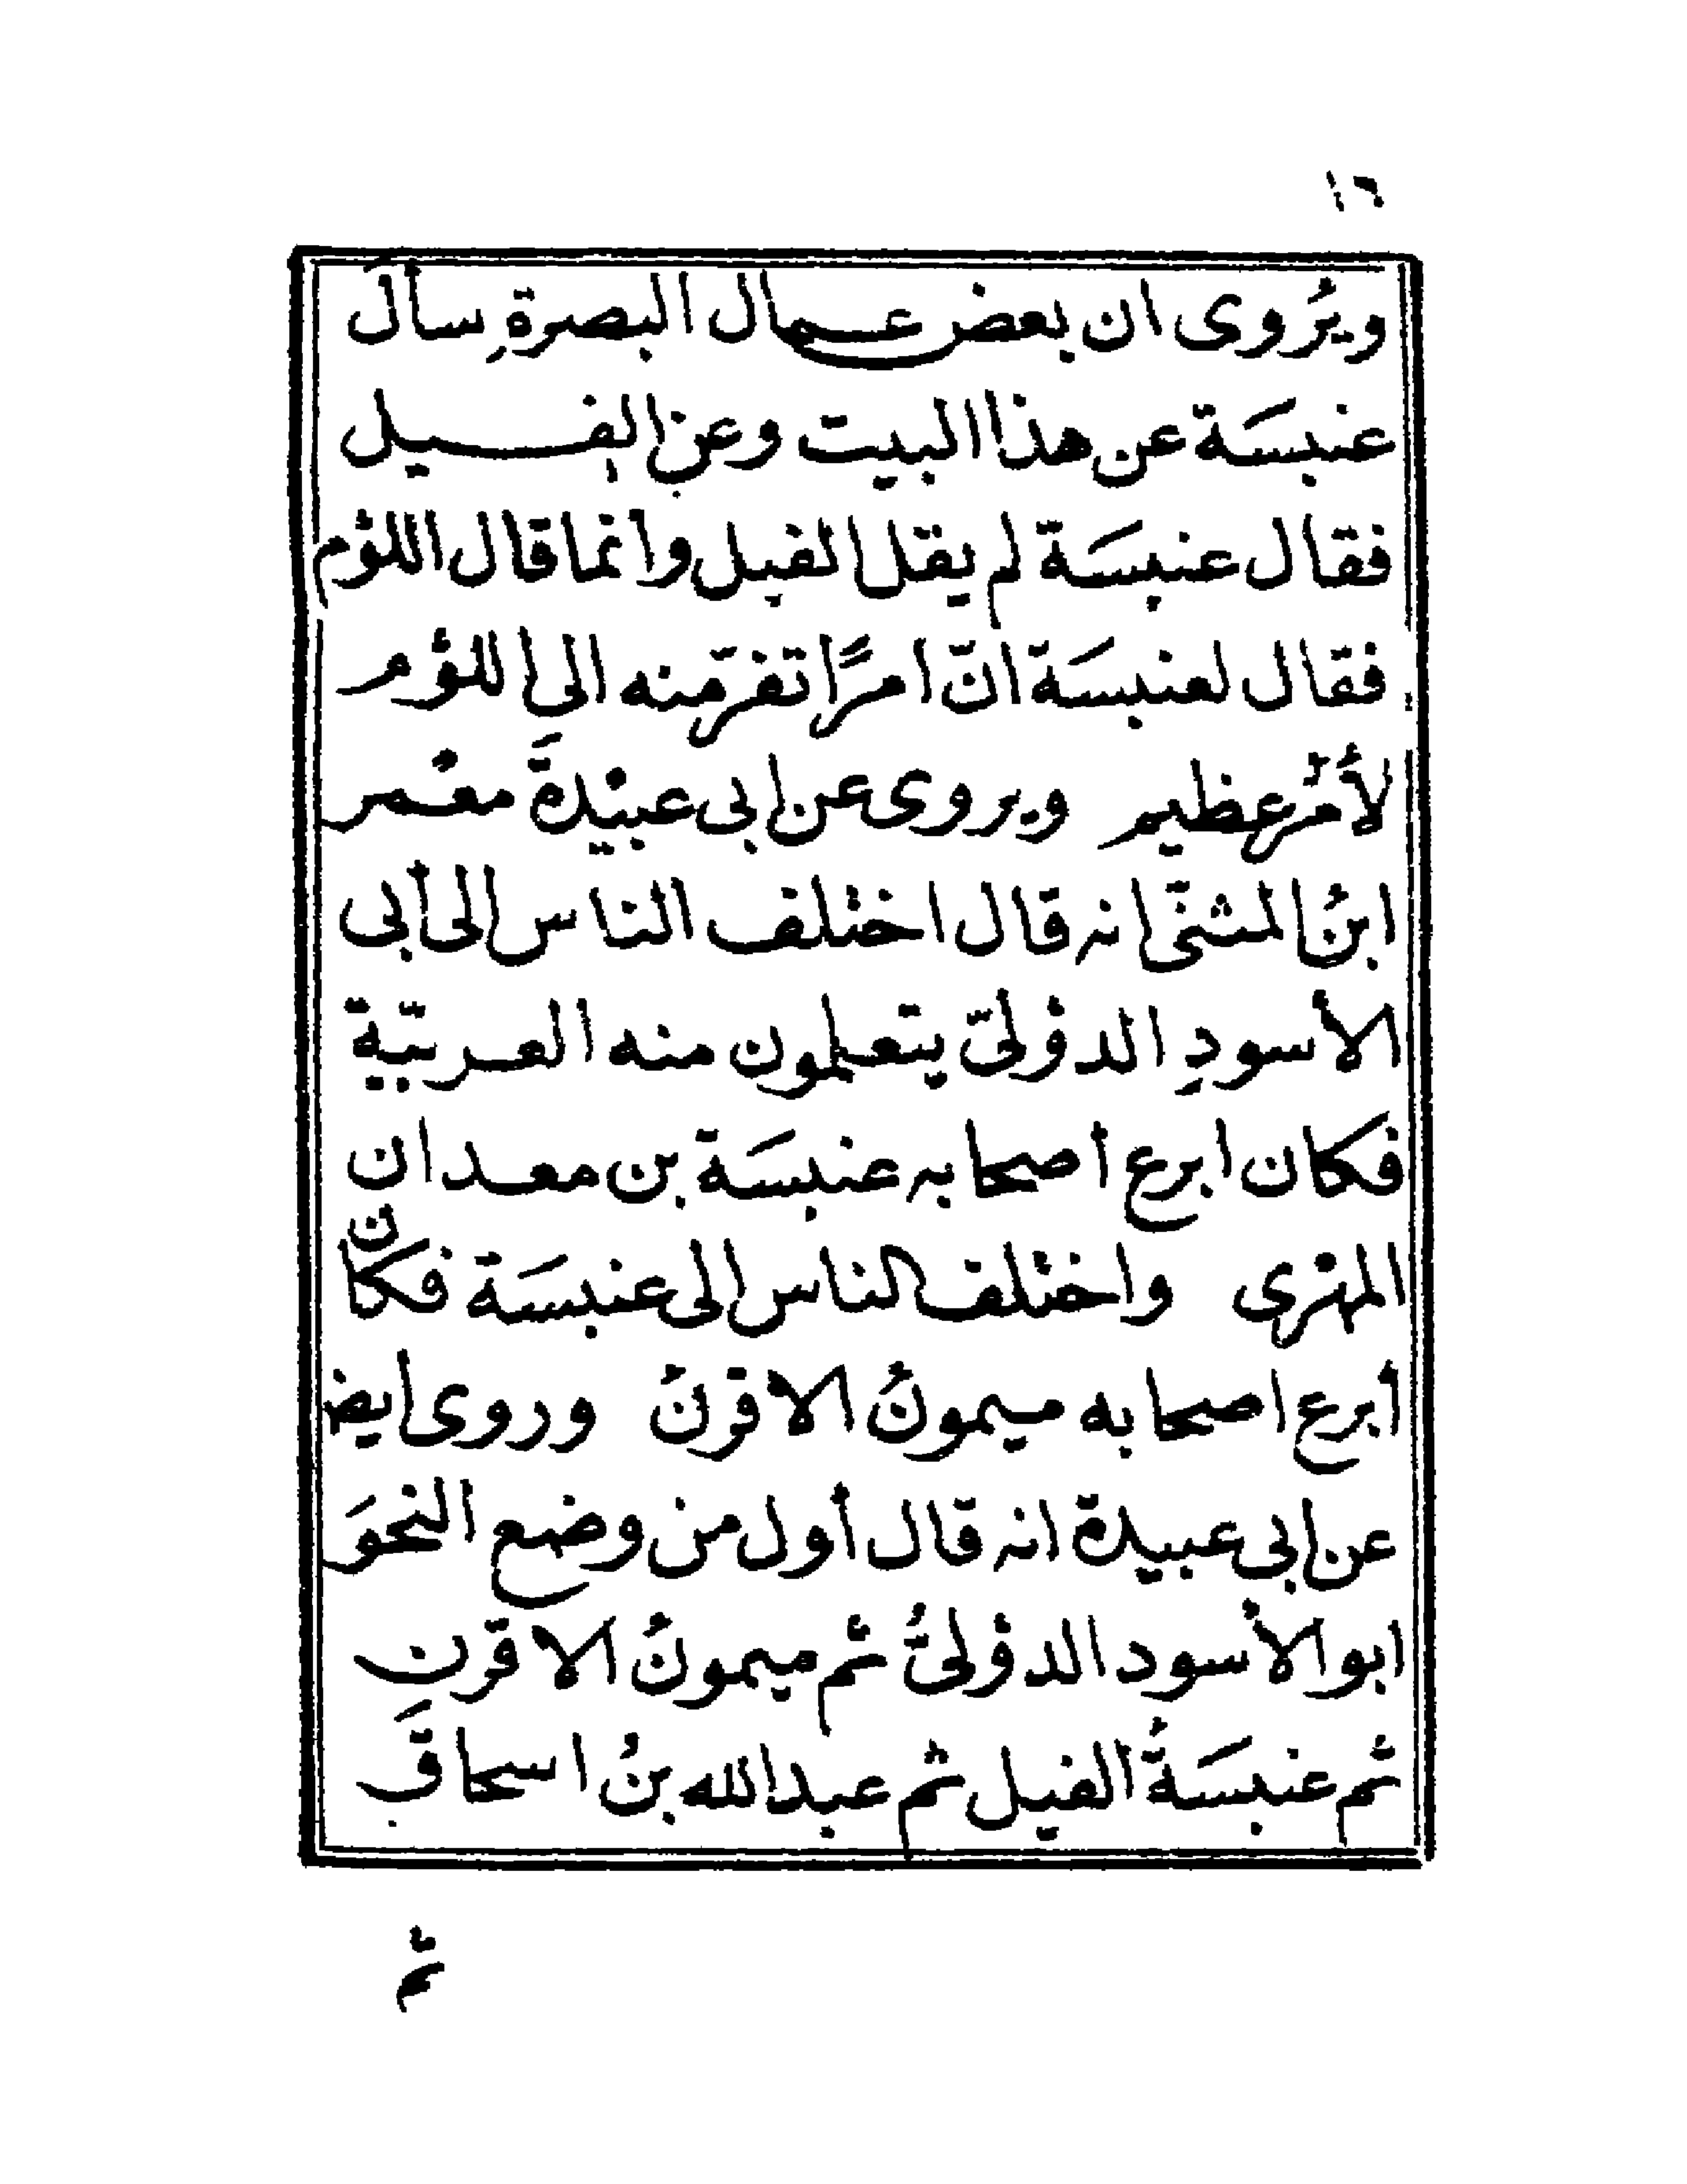 ١٦
ويُروى ان بعض عمال البصرةِ سأل
عنبسَة عن هذا البيت وعن الفيل
فقال عنبسَة لم يقل الفيل وانما قال اللؤم
فقال لعنبسَة انّ امرًا تفرّ منه الى اللؤم
لأمْر عظيم ويروى عن ابى عبيْدةَ معْمر
ابنُ المثنّى انه قال اختلف الناس الى أبى
الأسودِ الدؤلىّ يتعلمون منه العربيّة
فكان ابرع أصحابه عنبسَة بن معدان
المهْرى واختلف الناس الى عنبسَة فكان
أبرع اصحابه ميمونُ الاقرنُ وروى ايضا
عن ابى عبيدة انه قال أول من وضع النحوَ
ابو الأسود الدؤلىُّ ثم ميمونُ الاقرن
ثم عنبسَةُ الفيل ثم عبد الله بنُ اسحاقَ
ثم